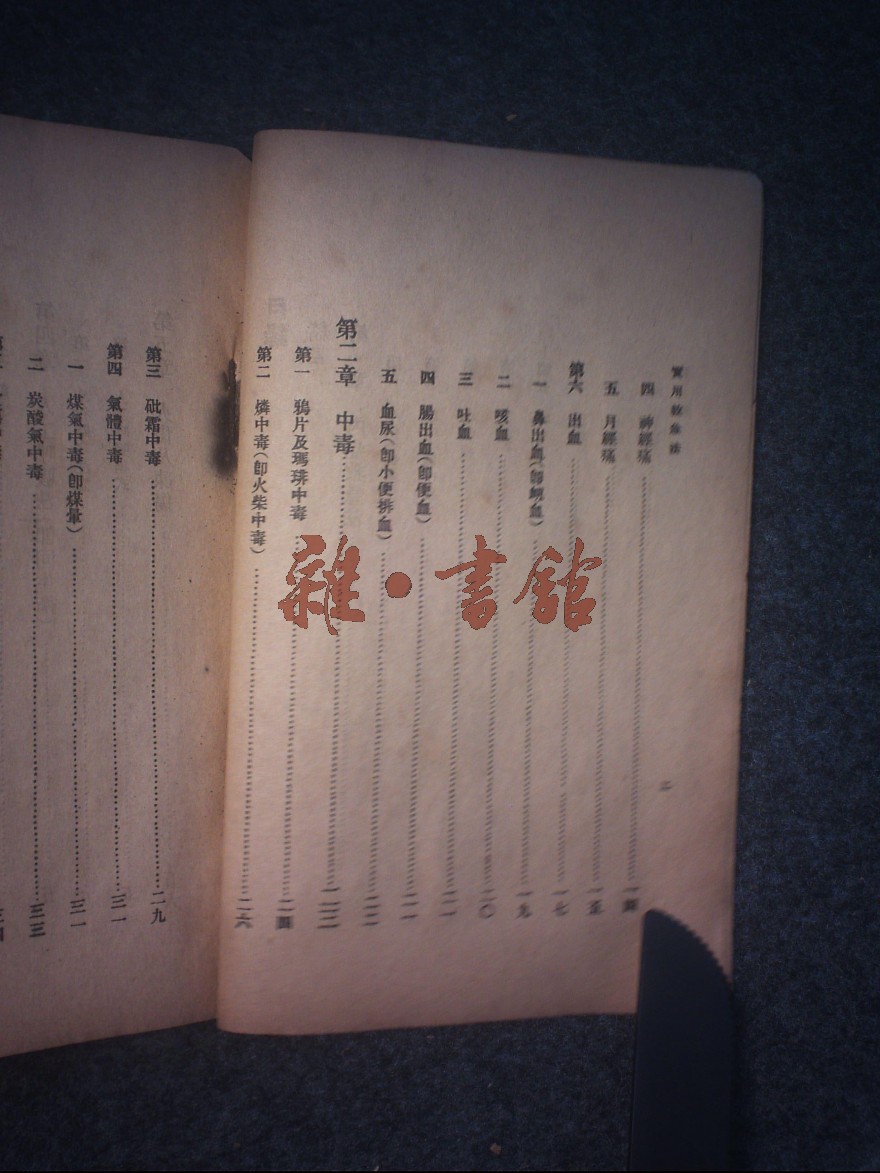 實用救急法
四 神經痛……一四
五 月經痛……一五
第六 出血……一七
一 鼻出血(卽衄血)……一九
二 咳血……二〇
三 吐血……二一
四 腸出血(卽便血)……二一
五 血尿(卽小便排血)……二二
第二章 中毒……二二
第一 鴉片及瑪琲中毒……二四
第二 燐中毒(卽火柴中毒)……二六
第三 砒霜中毒……二九
第四 氣體中毒……三一
一 煤氣中毒(卽煤暈)……三一
二 炭酸氣中毒……三三
雜·書館